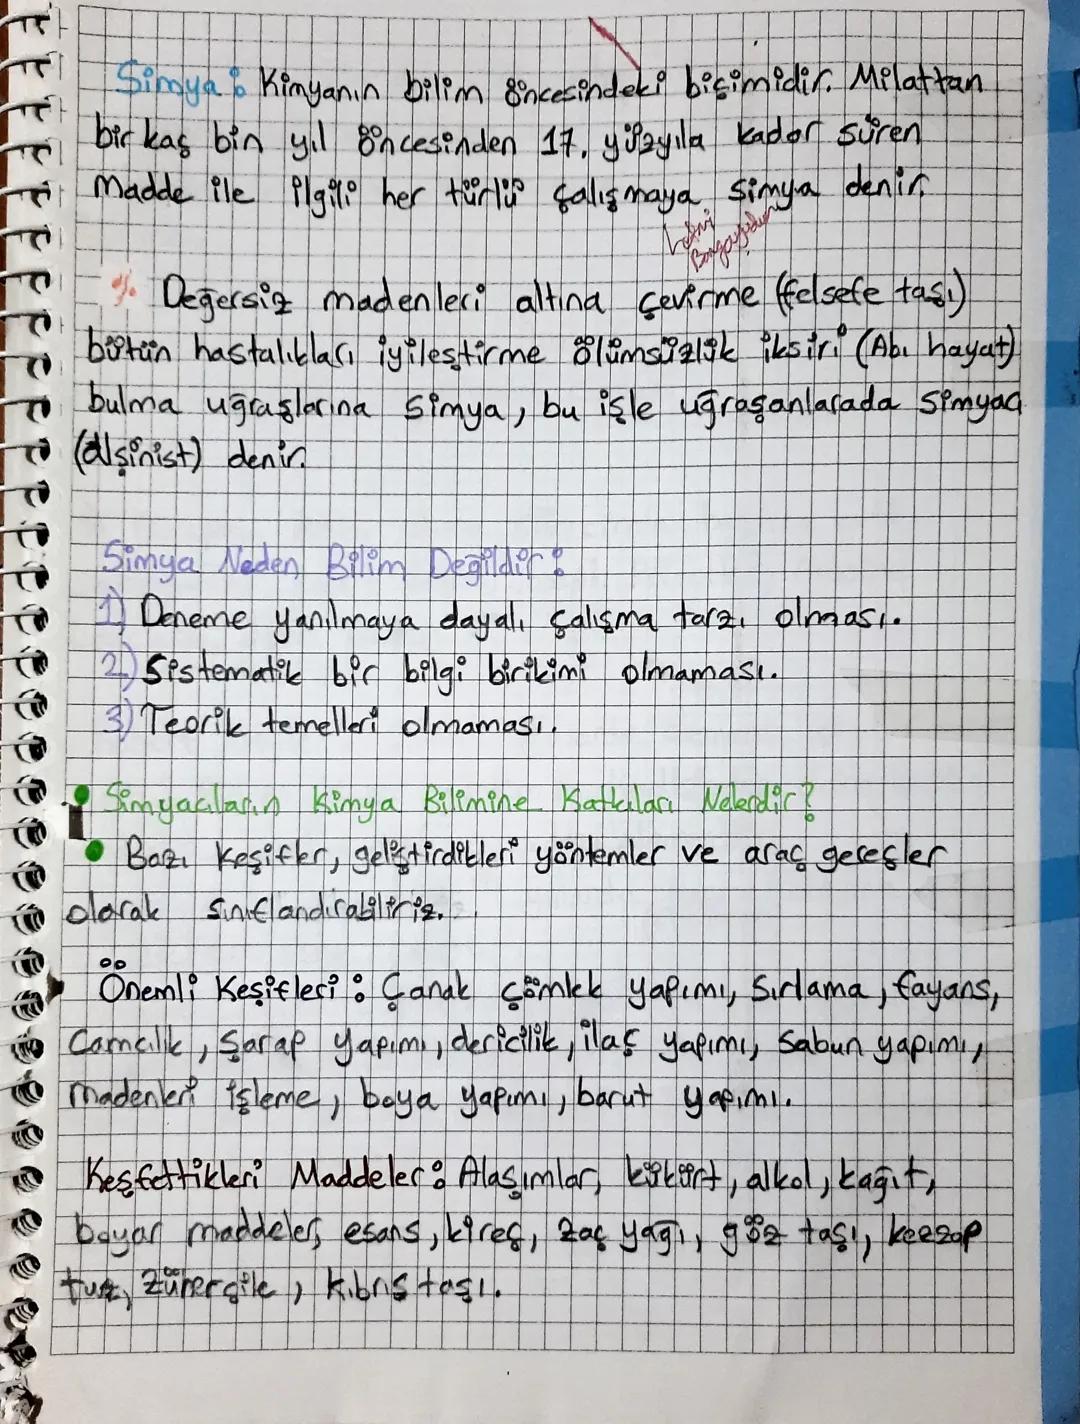 Simya: Kimyanın bilim öncesindeki biçimidir. Milattan
bir kaç bin yıl öncesinden 17. yüzyıla kadar süren
Madde ile ilgili her türlü çalışmaya simya denir.
Değersiz madenleri altına çevirme (felsefe taşı)
bütün hastalıkları iyileştirme ölümsüzlük iksiri (Abı hayat)
bulma uğraşlarına simya, bu işle uğraşanlarada simyacı
(alşinist) denir.
Simya Neden Bilim Değildir:
1) Deneme yanılmaya dayalı çalışma tarzı olması.
2) Sistematik bir bilgi birikimi olmaması.
3) Teorik temelleri olmaması.
• Simyacıların Kimya Bilimine Katkıları Nelerdir?
• Bazı Keşifler, geliştirdikleri yöntemler ve araç gereçler
olarak sınıflandırabiliriz.
Önemli Keşifleri: Çanak çömlek yapımı, Sırlama, fayans,
Camcılık, Şarap yapımı, dericilik, ilaç yapımı, Sabun yapımı,
madenleri işleme, boya yapımı, barut yapımı.
Keşfettikleri Maddeler: Alaşımlar, kükürt, alkol, kağıt,
boyar maddeler, esans, kireç, zaç yağı, göz taşı, kezzap
tuz, Zürnergile, Kıbrıs taşı.